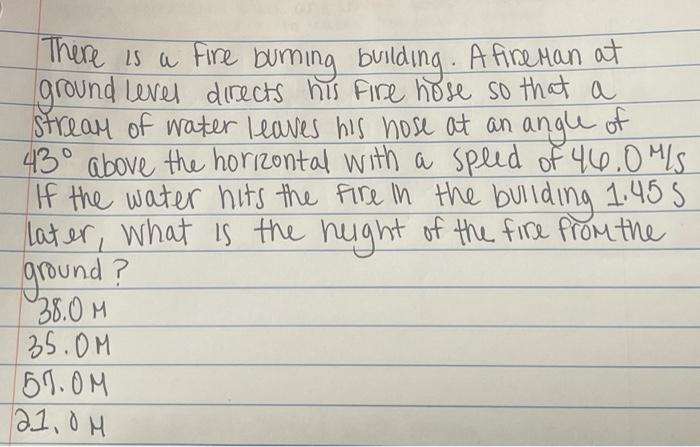 There is a fire burning building. A fireman at
ground level directs his fire hose so that a
stream of water leaves his hose at an angle of
43° above the horizontal with a speed of 46.0 m/s
If the water hits the fire in the building 1.45 s
later, what is the height of the fire from the
ground?
38.0 M
35.0 M
57.0 M
21.0 M